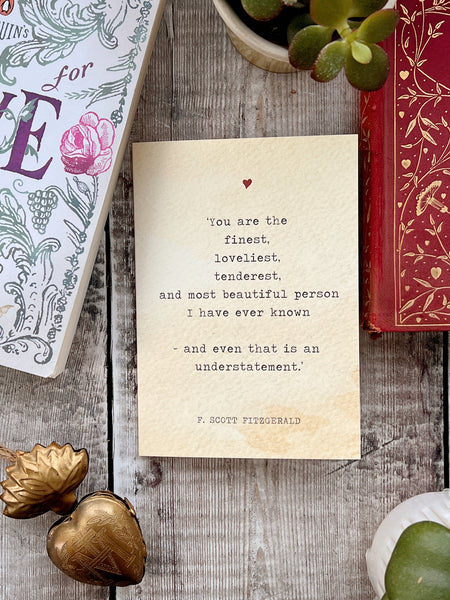 UIN'S
for
VE
'You are the
finest,
loveliest,
tenderest,
and most beautiful person
I have ever known
- and even that is an
understatement.'
F. SCOTT FITZGERALD